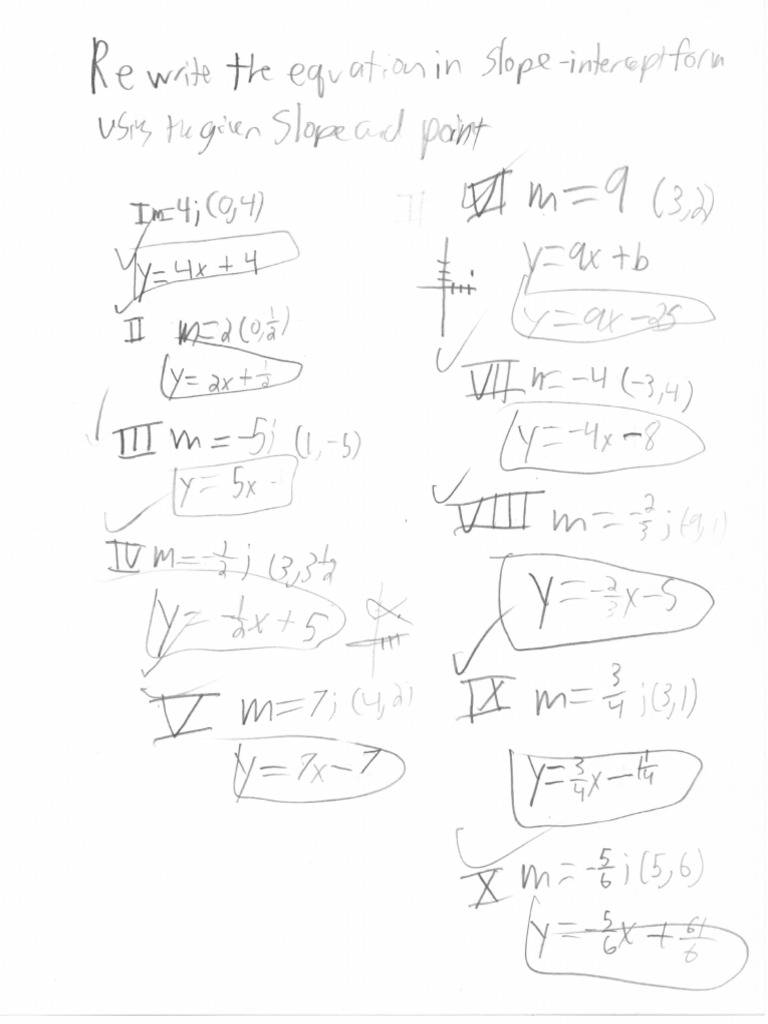 Rewrite the equation in slope-intercept form
using the given slope and point
I m=4; (0,4)
y=4x+4
II m=2 (0,1/2)
y=2x+1/2
III m=-5; (1,-5)
y=5x-
IV m=-1/2; (3,3 1/2
y=-1/2x+5
V m=7; (4,2)
y=7x-7
VI m=9 (3,2)
y=9x+b
y=9x-25
VII m=-4 (-3,4)
y=-4x-8
VIII m=-2/3; (9,1
y=-2/3x-5
IX m=3/4; (3,1)
y=3/4x-1 1/4
X m=-5/6; (5,6)
y=-5/6x+61/6